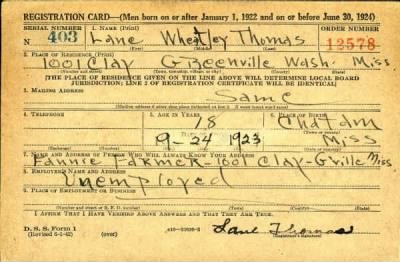 REGISTRATION CARD—(Men born on or after January 1, 1922 and on or before June 30, 1924)
SERIAL NUMBER 1. NAME (Print) ORDER NUMBER
403 Lane Wheatley Thomas 12578
(First) (Middle) (Last)
2. PLACE OF RESIDENCE (Print)
1001 Clay Greenville Wash. Miss
(Number and street) (Town, township, village, or city) (County) (State)
[THE PLACE OF RESIDENCE GIVEN ON THE LINE ABOVE WILL DETERMINE LOCAL BOARD
JURISDICTION; LINE 2 OF REGISTRATION CERTIFICATE WILL BE IDENTICAL]
3. MAILING ADDRESS
Same
4. TELEPHONE 5. AGE IN YEARS 6. PLACE OF BIRTH
18 Chatam
9-24 1923 Miss
7. NAME AND ADDRESS OF PERSON WHO WILL ALWAYS KNOW YOUR ADDRESS
Fannie Farmer-1001 Clay-G-ville Miss
8. EMPLOYER'S NAME AND ADDRESS
Unemployed
9. PLACE OF EMPLOYMENT OR BUSINESS
(Number and street or R. F. D. number) (Town) (County) (State)
I AFFIRM THAT I HAVE VERIFIED ABOVE ANSWERS AND THAT THEY ARE TRUE.
D. S. S. Form 1
(Revised 6-9-42) (over) Lane Thomas
(Registrant's signature)